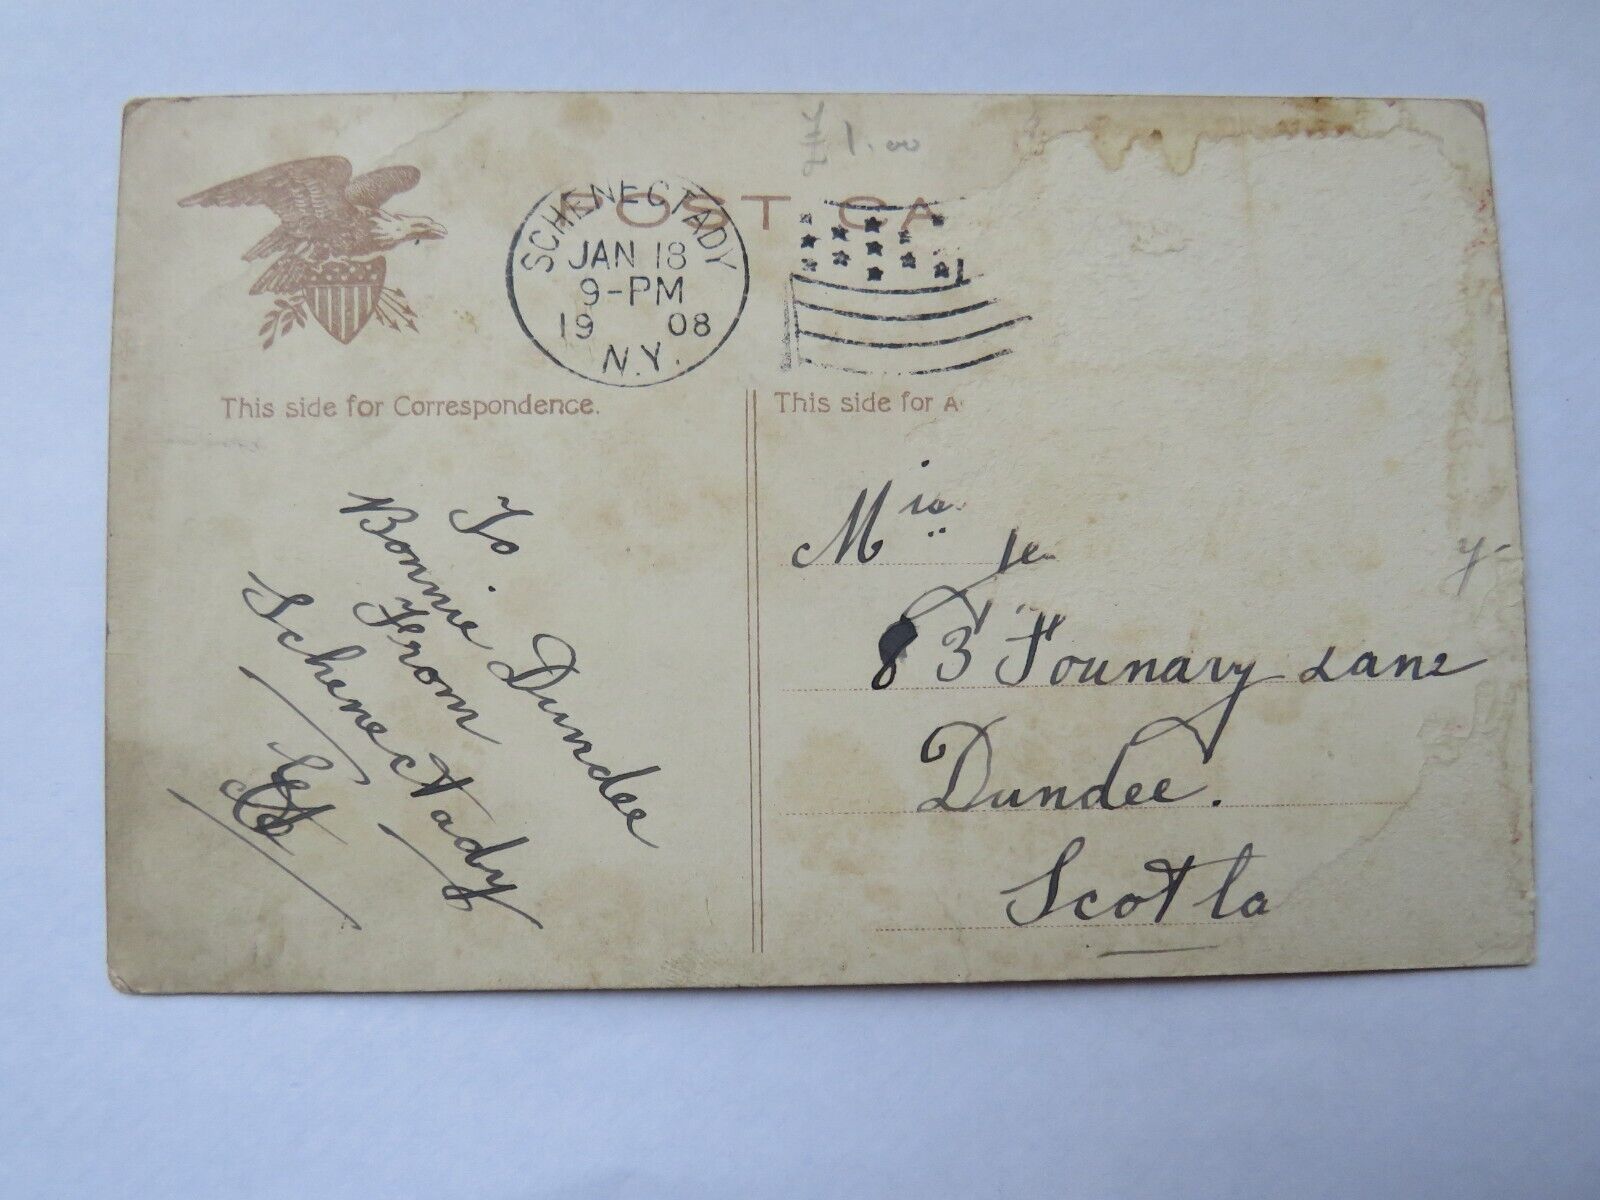 £1.00
POST CA
SCHENECTADY
JAN 18
9-PM
19 08
N.Y.
This side for Correspondence.
To
Bonnie Dundee
From
Schenectady
This side for A
Mis
83 Foundry Lane
Dundee.
Scotla